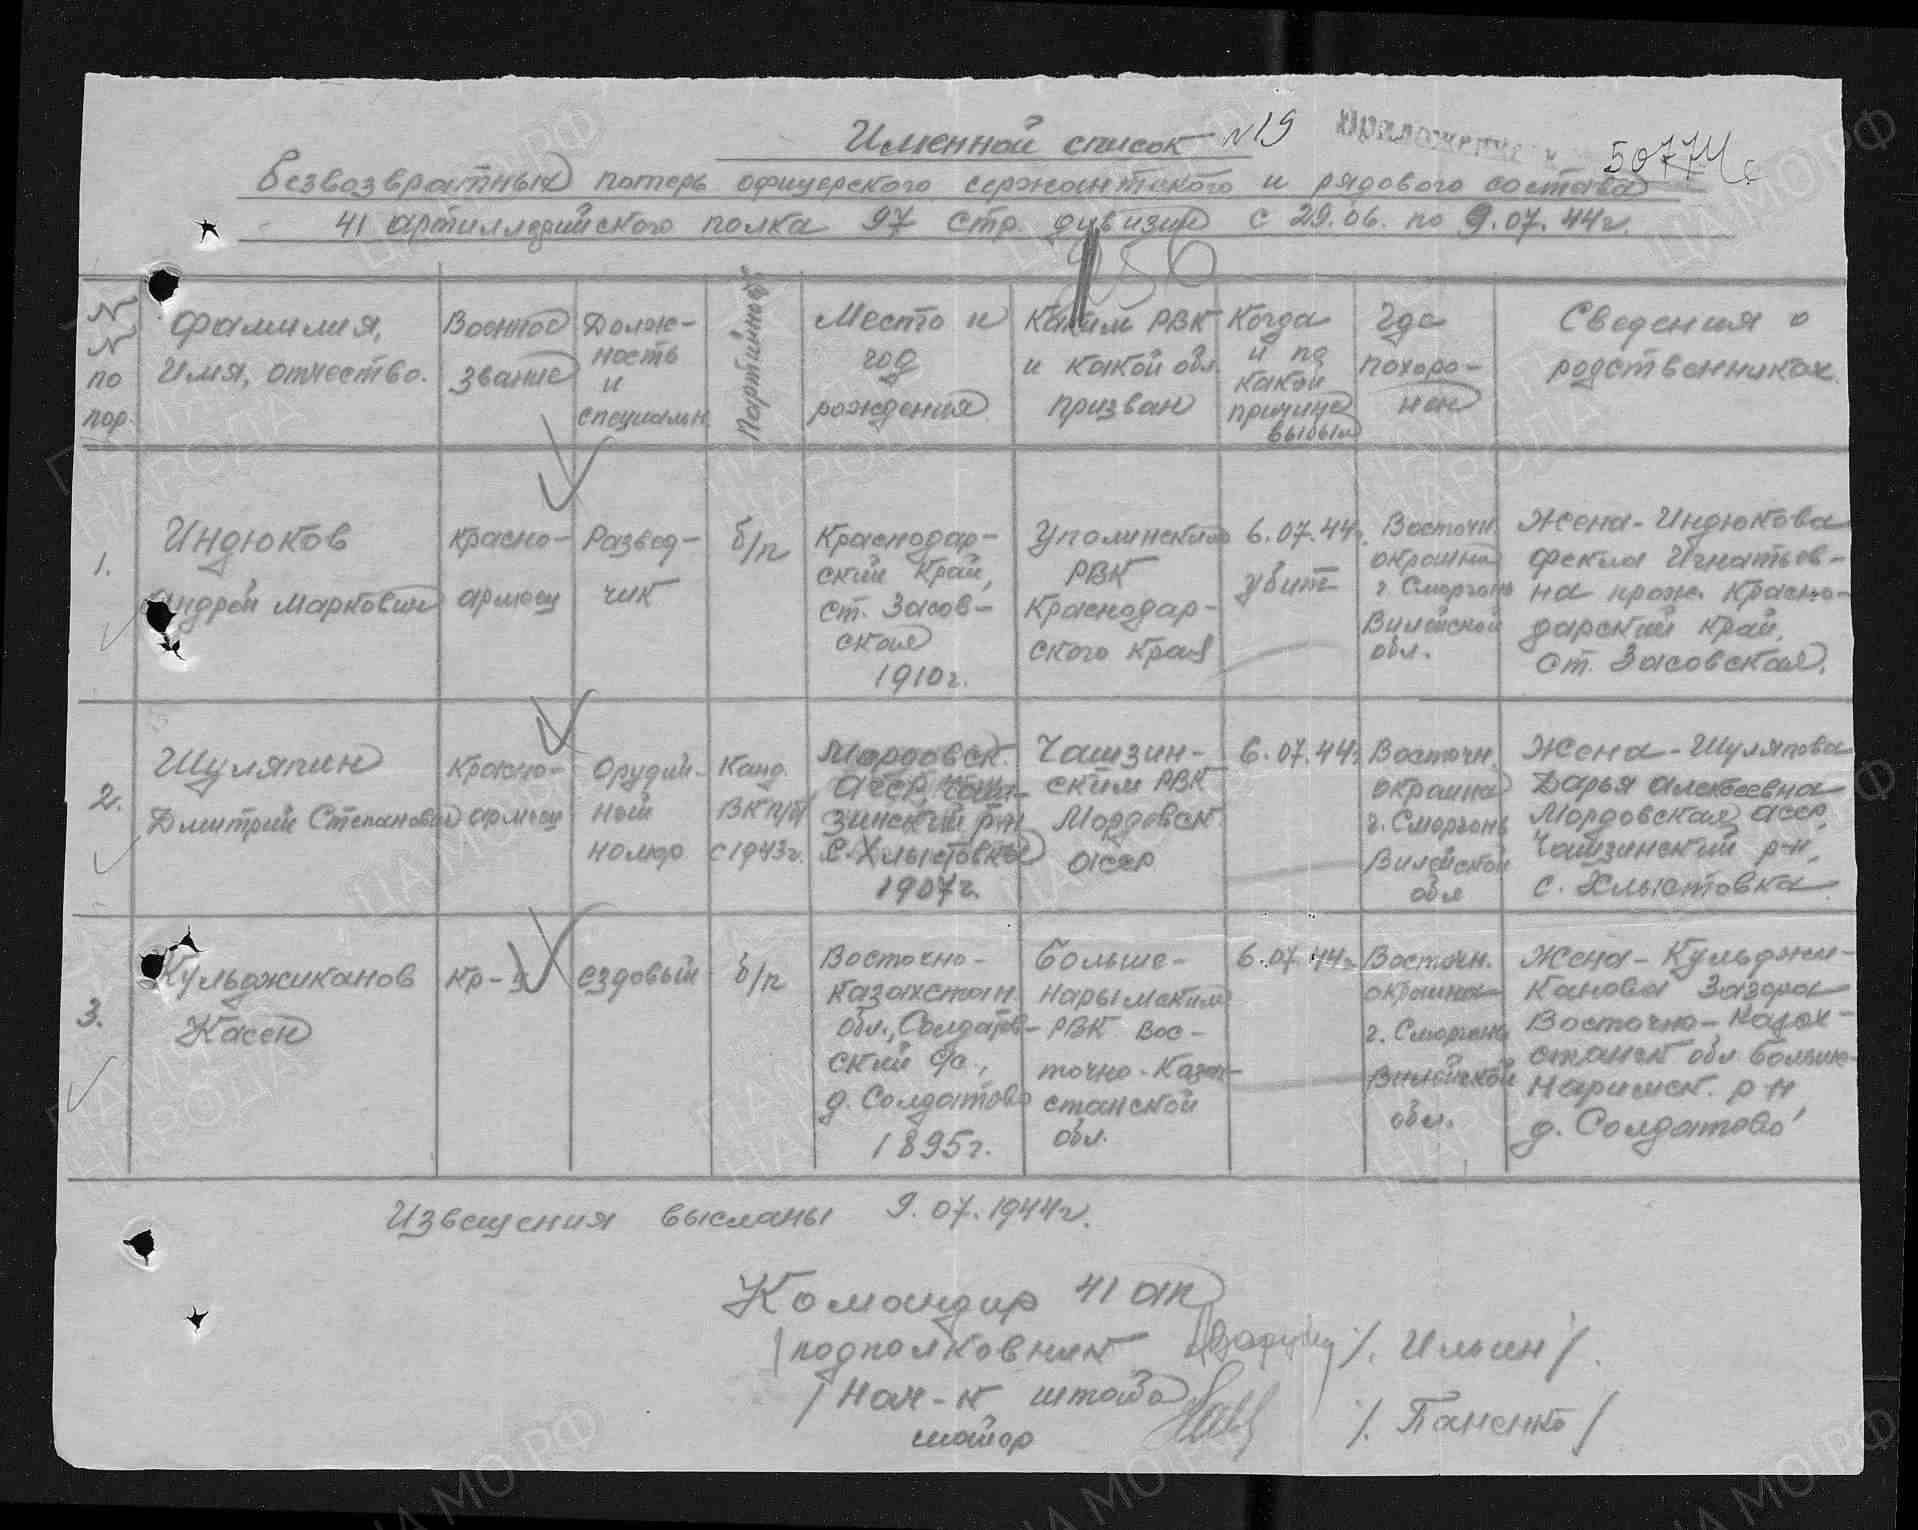 Именной список №19
Приложение к 50774с
Безвозвратных потерь офицерского сержантского и рядового состава
41 артиллерийского полка 97 стр. дивизии с 29.06. по 9.07.44г.
256
№ № по пор.
Фамилия, Имя, отчество.
Военное звание
Долж-
ность
и
специальн
Партийность
Место и
год
рождения
Каким РВК
и какой обл.
призван
Когда
и по
какой
причине
выбыл
Где
похоро-
нен
Сведения о
родственниках.
1.
Индюков
Андрей Маркович
Красно-
армеец
Развед-
чик
б/п
Краснодар-
ский край,
ст. Засов-
ская
1910г.
Упоминским
РВК
Краснодар-
ского края
6.07.44г.
убит
Восточн.
окраина
г. Сморгонь
Вилейской
обл.
Жена - Индюкова
Фекла Игнатьев-
на прож. Красно-
дарский край,
ст. Засовская.
2.
Шуляпин
Дмитрий Степанович
Красно-
армеец
Орудий-
ный
номер
Канд.
ВКП/б/
с 1943г.
Мордовск.
АССР, Чам-
зинский р-н
с. Хлыстовка
1907г.
Чамзин-
ским РВК
Мордовск.
АССР
6.07.44г.
Восточн.
окраина
г. Сморгонь
Вилейской
обл
Жена - Шуляпова
Дарья Алексеевна
Мордовская АССР,
Чамзинский р-н,
с. Хлыстовка
3.
Кульджиканов
Касен
кр-ц
ездовый
б/п
Восточно-
Казахстан.
обл., Солдатов-
ский с/с.,
д. Солдатово
1895г.
Больше-
нарымским
РВК Вос-
точно-Казах-
станской
обл.
6.07.44г.
Восточн.
окраина
г. Сморгонь
Вилейской
обл.
Жена - Кульджи-
канова Зазора
Восточно-Казах-
станск обл. Больше-
Нарымск. р-н,
д. Солдатово
Извещения высланы 9.07.1944г.
Командир 41 ап
/подполковник /. Ильин/.
/Нач-к штаба
майор /. Паненко/
ПАМЯТЬ НАРОДА
ЦАМО РФ